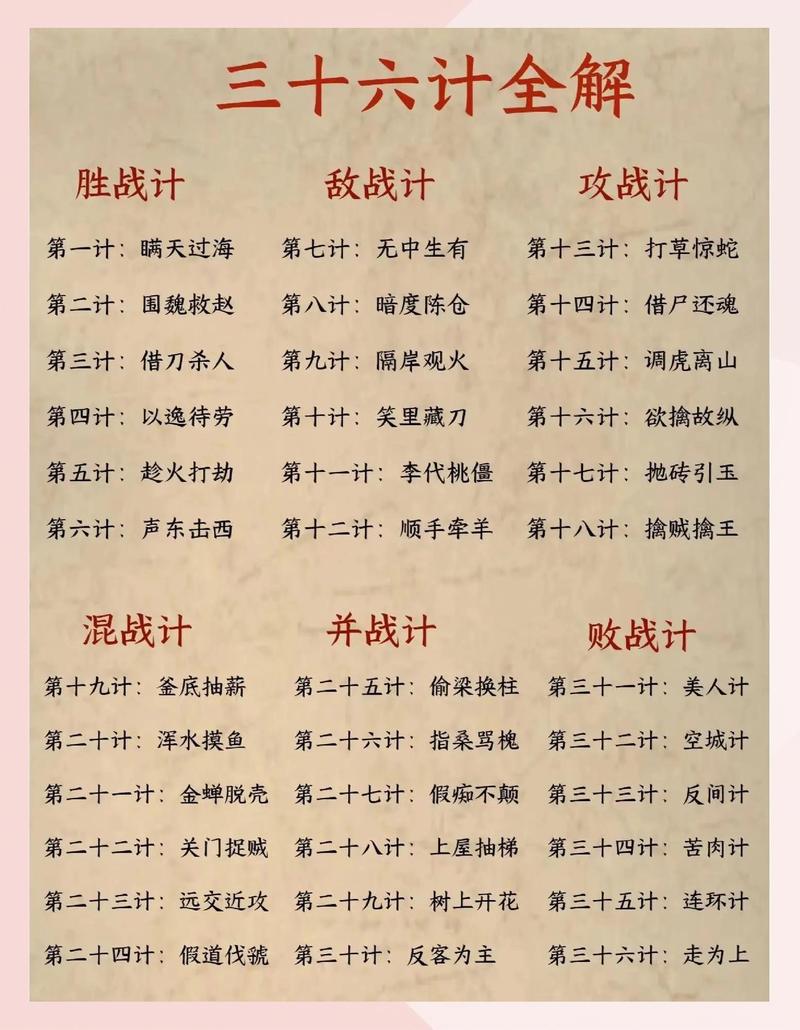 三十六计全解
胜战计
第一计：瞒天过海
第二计：围魏救赵
第三计：借刀杀人
第四计：以逸待劳
第五计：趁火打劫
第六计：声东击西
敌战计
第七计：无中生有
第八计：暗度陈仓
第九计：隔岸观火
第十计：笑里藏刀
第十一计：李代桃僵
第十二计：顺手牵羊
攻战计
第十三计：打草惊蛇
第十四计：借尸还魂
第十五计：调虎离山
第十六计：欲擒故纵
第十七计：抛砖引玉
第十八计：擒贼擒王
混战计
第十九计：釜底抽薪
第二十计：浑水摸鱼
第二十一计：金蝉脱壳
第二十二计：关门捉贼
第二十三计：远交近攻
第二十四计：假道伐虢
并战计
第二十五计：偷梁换柱
第二十六计：指桑骂槐
第二十七计：假痴不颠
第二十八计：上屋抽梯
第二十九计：树上开花
第三十计：反客为主
败战计
第三十一计：美人计
第三十二计：空城计
第三十三计：反间计
第三十四计：苦肉计
第三十五计：连环计
第三十六计：走为上